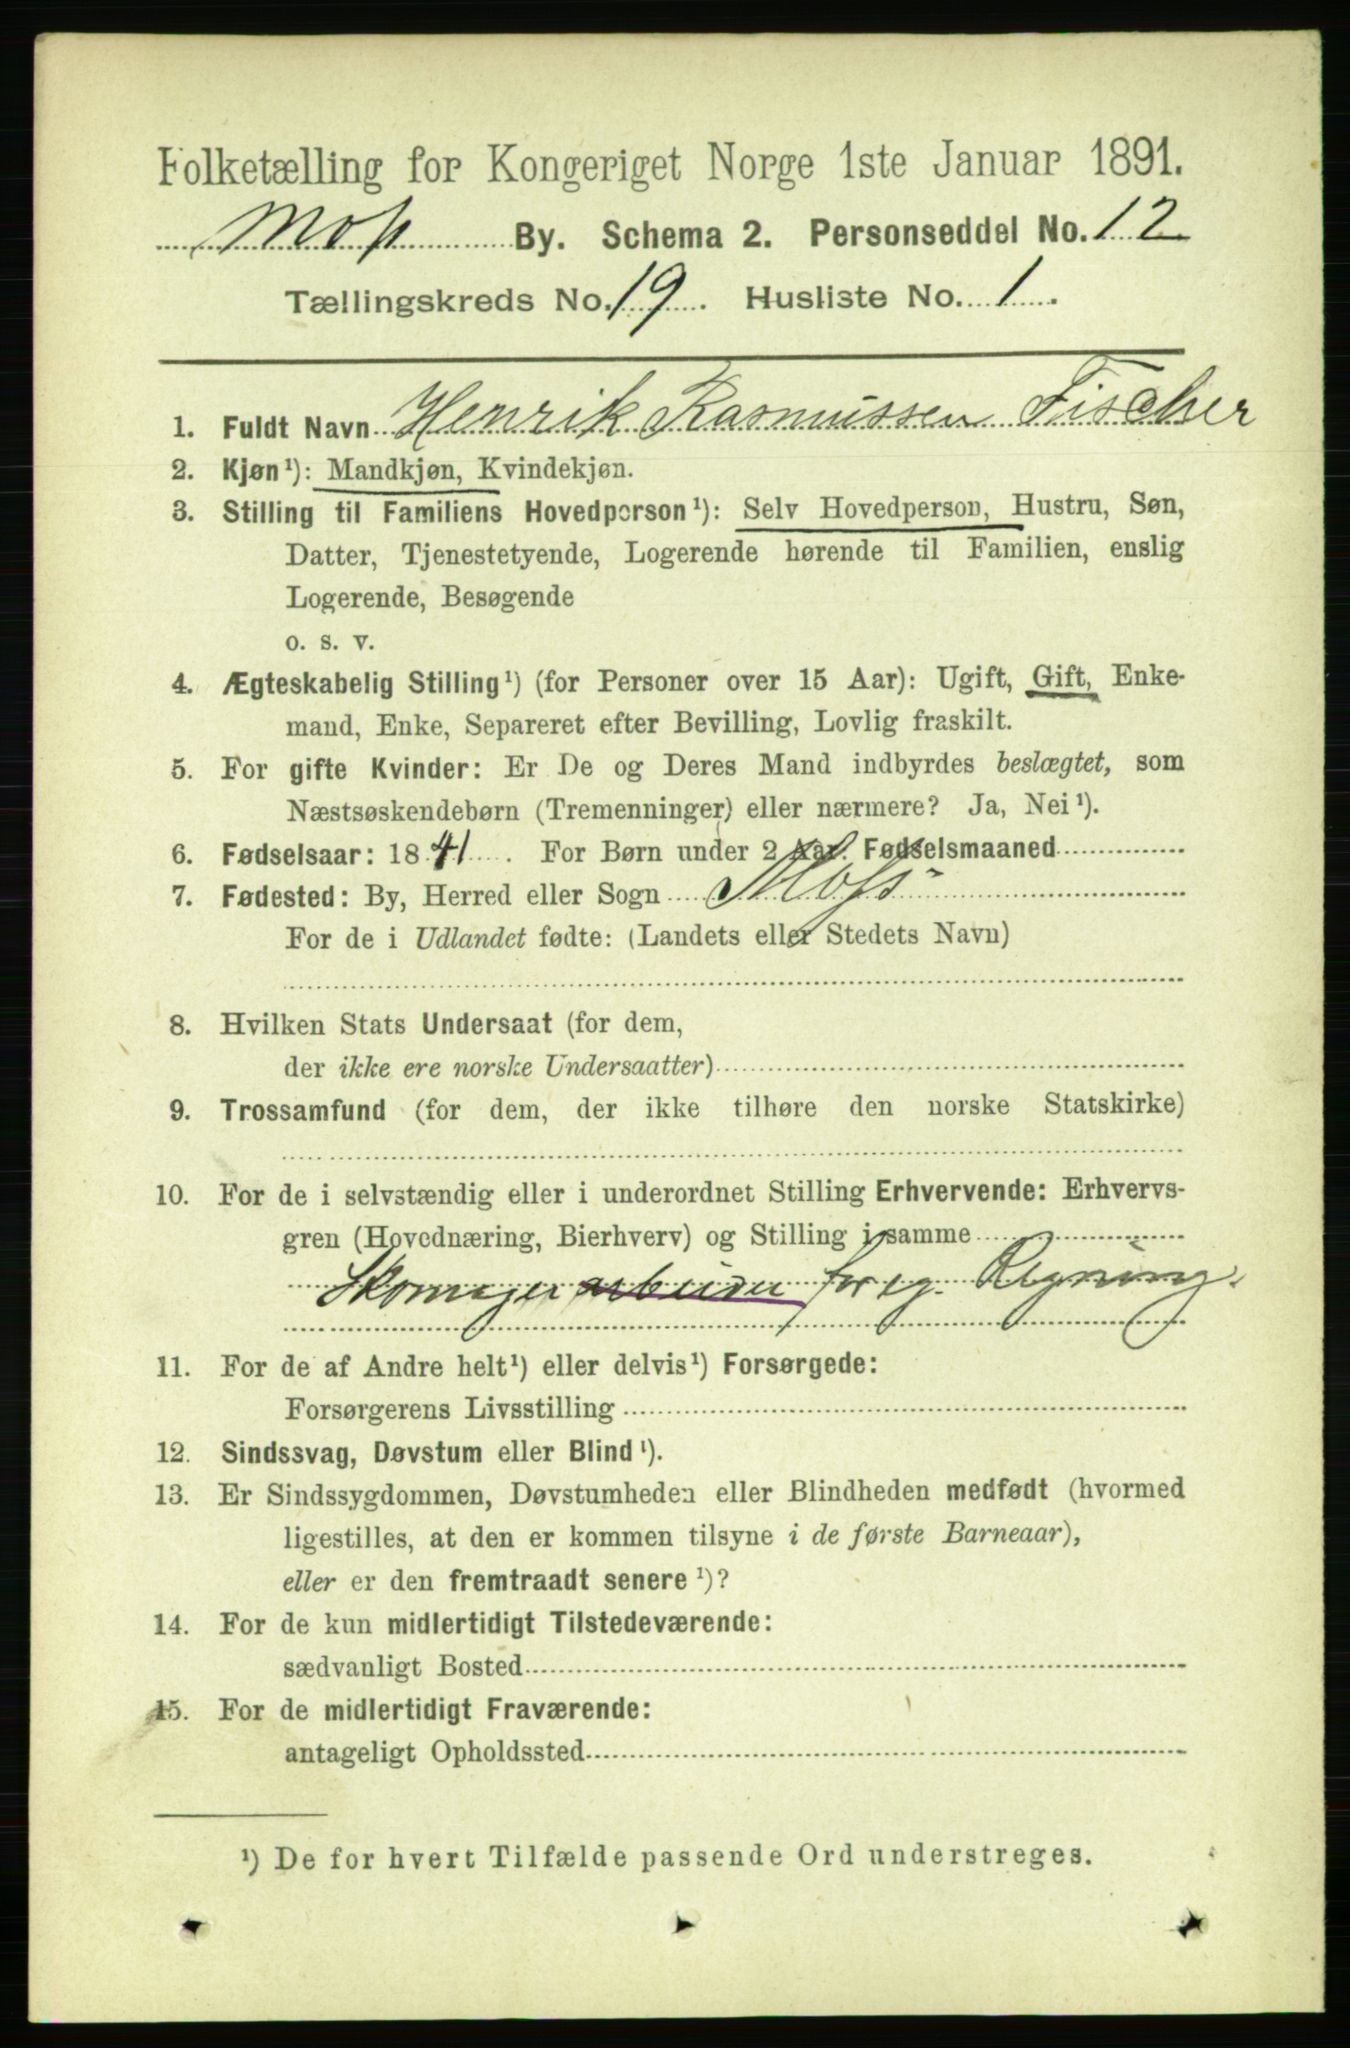 Folketælling for Kongeriget Norge 1ste Januar 1891.
Moss By. Schema 2. Personseddel No. 12
Tællingskreds No. 19. Husliste No. 1.
1. Fuldt Navn Henrik Rasmussen Fischer
2. Kjøn¹): Mandkjøn, Kvindekjøn.
3. Stilling til Familiens Hovedperson¹): Selv Hovedperson, Hustru, Søn,
Datter, Tjenestetyende, Logerende hørende til Familien, enslig
Logerende, Besøgende
o. s. v.
4. Ægteskabelig Stilling¹) (for Personer over 15 Aar): Ugift, Gift, Enke-
mand, Enke, Separeret efter Bevilling, Lovlig fraskilt.
5. For gifte Kvinder: Er De og Deres Mand indbyrdes beslægtet, som
Næstsøskendebørn (Tremenninger) eller nærmere? Ja, Nei¹).
6. Fødselsaar: 1841. For Børn under 2 Aar. Fødselsmaaned
7. Fødested: By, Herred eller Sogn Moss
For de i Udlandet fødte: (Landets eller Stedets Navn)
8. Hvilken Stats Undersaat (for dem,
der ikke ere norske Undersaatter)
9. Trossamfund (for dem, der ikke tilhøre den norske Statskirke)
10. For de i selvstændig eller i underordnet Stilling Erhvervende: Erhvervs-
gren (Hovednæring, Bierhverv) og Stilling i samme
Skomagerarbeider for eg. Regning.
11. For de af Andre helt¹) eller delvis¹) Forsørgede:
Forsørgerens Livsstilling
12. Sindssvag, Døvstum eller Blind¹).
13. Er Sindssygdommen, Døvstumheden eller Blindheden medfødt (hvormed
ligestilles, at den er kommen tilsyne i de første Barneaar),
eller er den fremtraadt senere¹)?
14. For de kun midlertidigt Tilstedeværende:
sædvanligt Bosted
15. For de midlertidigt Fraværende:
antageligt Opholdssted
¹) De for hvert Tilfælde passende Ord understreges.